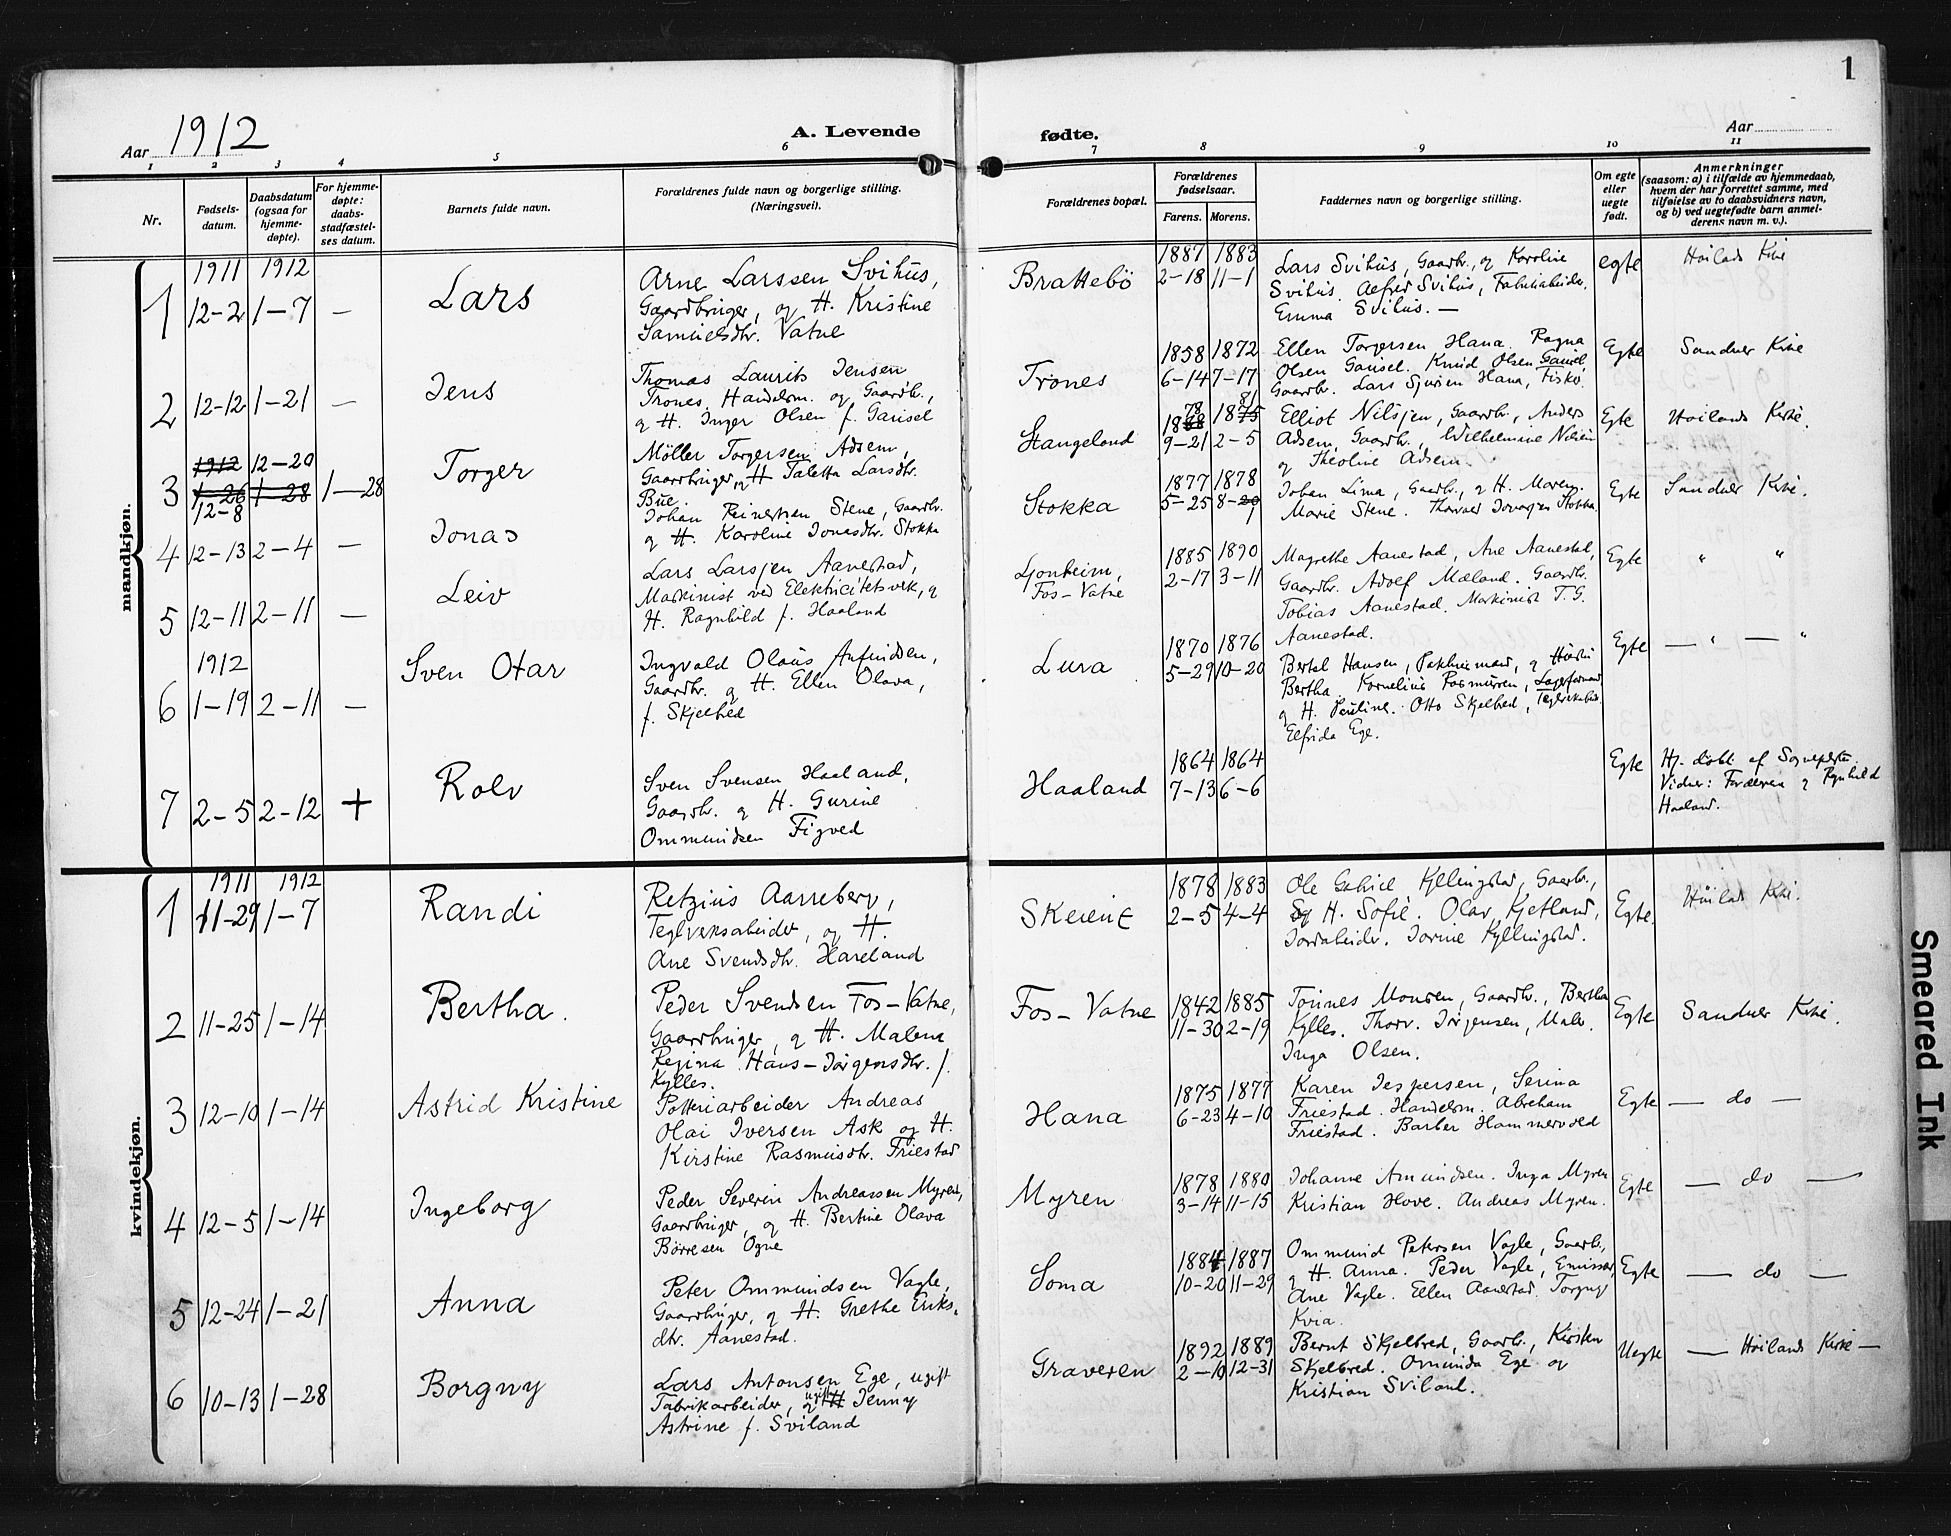 1
Aar 1912
A. Levende fødte.
Aar
1 2 3 4 5 6 7 8 9 10 11
Nr.
Fødsels-
datum.
Daabsdatum
(ogsaa for
hjemme-
døpte).
For hjemme-
døpte:
daabs-
stadfæstel-
ses datum.
Barnets fulde navn.
Forældrenes fulde navn og borgerlige stilling.
(Næringsvei).
Forældrenes bopæl.
Forældrenes
fødselsaar.
Farens. Morens.
Faddernes navn og borgerlige stilling.
Om egte
eller
uegte
født.
Anmerkninger
(saasom: a) i tilfælde av hjemmedaab,
hvem der har forrettet samme, med
tilføielse av to daabsvidners navn,
og b) ved uegtefødte barn anmel-
derens navn m. v.).
mandkjøn.
1911 1912
1 12-2 1-7 — Lars
Arne Larssen Svihus,
Gaardbruger, og H. Kristine
Samuelsdtr. Vatne
Brattebö
1887 1883
2-18 11-1
Lars Svihus, Gaardb., og Karoline
Svihus. Alfred Svihus, Fabrikarbeider.
Emma Svihus. —
egte
Höilands Kirke
2 12-12 1-21 — Jens
Thomas Laurits Jensen
Trones, Handelsm. og Gaardb.,
og H. Inger Olsen f. Gausel
Trones
1858 1872
6-14 7-17
Ellen Torgersen Hana. Ragna
Olsen Gausel. Knud Olsen Gausel,
Gaardbr. Lars Sjursen Hana, Fisker.
Egte
Sandnes Kirke
3 1912 12-20
1-26 1-28 1-28
12-8
Torger
Möller Torgersen Adsem,
Gaardbruger, og H. Taletta Larsdtr.
Bue.
Stangeland
78 81
1868 1875
9-21 2-5
Elliot Nilsjen, Gaardb., Anders
Adsem, Gaardbr., Wilhelmine Nilsen
og Theoline Adsem.
Egte
Höilands Kirke.
4 12-13 2-4 — Jonas
Johan Reinertsen Stene, Gaardbr.
og H. Karoline Jonasdtr. Stokka
Stokka
1877 1878
5-25 8-20
1
Johan Lima, Gaardb., og H. Maren.
Marie Stene. Thorvald Stokka
Egte
Sandnes Kirke.
5 12-11 2-11 — Leiv
Lars Larsjen Aanestad,
Maskinist ved Elektricitetsverk, og
H. Ragnhild f. Haaland
Ljonheim,
Fos-Vatne
1885 1890
2-17 3-11
Magrethe Aanestad, Ane Aanestad,
Gaardbr. Adolf Mæland. Gaardbr.
Tobias Aanestad. Maskinist T. G.
Aanestad.
Egte
" "
1912
6 1-19 2-11 — Sven Otar
Ingvald Olaus Anfindsen,
Gaardbr. og H. Ellen Olava,
f. Skjelbred
Lura
1870 1876
5-29 10-20
Bertel Hansen, og Hustru
Bertha. Kornelius Rasmussen, Lagerformand
og H. Pauline. Otto Skjelbred,
Elfrida Ege.
Egte
— " — "
7 2-5 2-12 + Rolv
Sven Svensen Haaland,
Gaardbr. og H. Gurine
Ommundsen Figved
Haaland
1864 1864
7-13 6-6
Egte
Hj. döbt af Sogneprsten.
Vidner: Forældrene og Ragnhild
Haaland.
kvindekjøn.
1911 1912
1 11-29 1-7 Randi
Retzius Aarreberg,
Teglverksarbeider, og H.
Ane Svendsdtr. Hareland
Skeiene
1878 1883
2-5 4-4
Ole Gabriel Kyllingstad, Gaardb.,
og H. Sofie. Olav Kjetland,
Jordarbeider. Jorine Kyllingstad.
Egte.
Höilands Kirke.
2 11-25 1-14 Bertha.
Peder Svendsen Fos-Vatne,
Gaardbruger, og H. Malene
Regina Hans-Jörgensdtr. f.
Kylles.
Fos-Vatne
1842 1885
11-30 2-19
Tönnes Monsen, Gaardbr., Bertha
Kylles. Thorv. Jörgensen, Maler.
Inga Olsen.
Egte
Sandnes Kirke.
3 12-10 1-14 Astrid Kristine
Potteriarbeider Andreas
Olai Iversen Ask og H.
Kirstine Rasmusdtr. Friestad
Hana
1875 1877
6-23 4-10
Karen Jespersen, Serina
Friestad. Handelsm. Abraham
Friestad. Barber Hammervold
Egte
— do —
4 12-5 1-14 Ingeborg
Peder Severin Andreassen Myren,
Gaardbruger, og H. Bertine Olava
Börresen Ogne
Myren
1878 1880
3-14 11-15
Johanne Amundsen. Inga Myren
Kristian Hove. Andreas Myren.
Egte
— do —
5 12-24 1-21 Anna
Peter Ommundsen Vagle,
Gaardbruger, og H. Grethe Eriks-
dtr. Aanestad.
Soma
1884 1887
10-20 11-29
Ommund Petersen Vagle, Gaardb.,
og H. Anna. Peder Vagle, Emissær,
Ane Vagle. Ellen Aanestad. Torgny
Kvia.
Egte
— do —
6 10-13 1-28 Borgny
Lars Antonsen Ege, ugift
Fabrikarbeider, og ugift H Jenny
Astrine f. Sviland
Graveren
1892 1889
2-10 12-31
Bernt Skjelbred, Gaardb., Kirsten
Skjelbred. Omunda Ege og
Kristian Sviland.
Uegte
— Höilands Kirke —
Smeared Ink